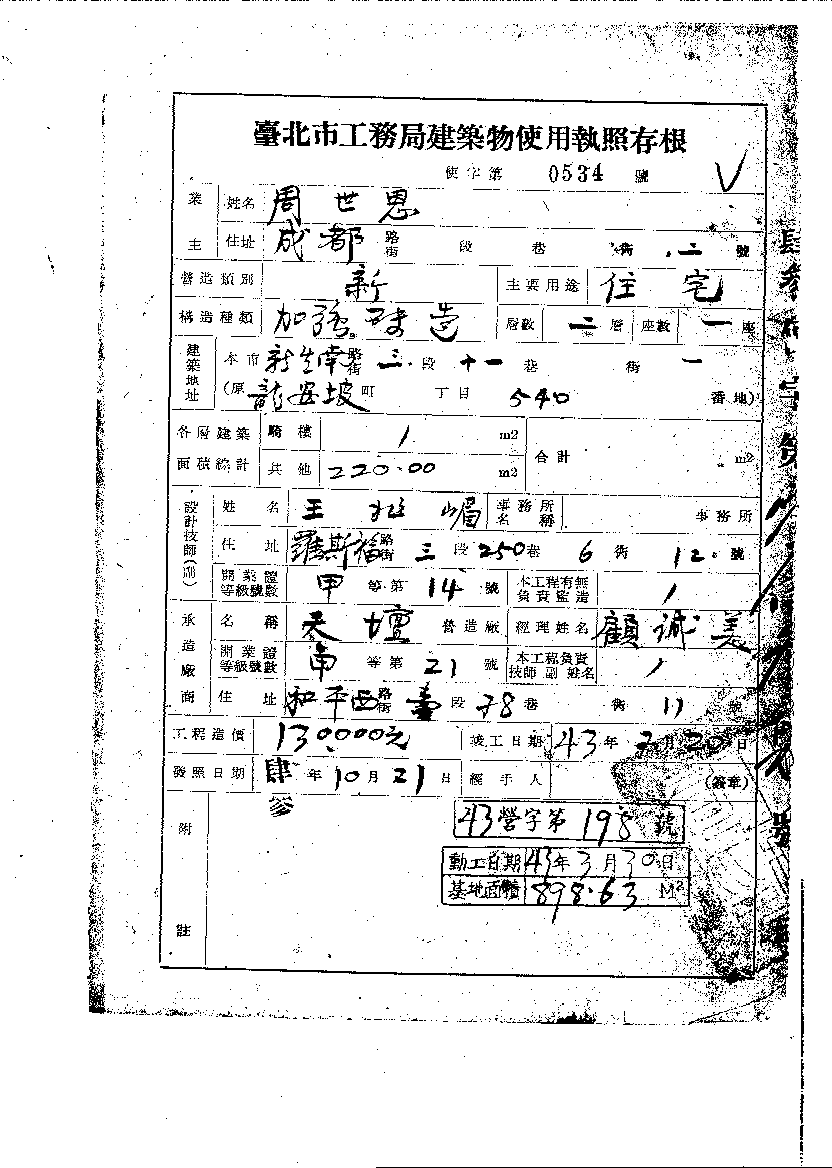 臺北市工務局建築物使用執照存根
使字第 0534 號 V
業主 姓名 周世恩
住址 成都 路街 段 巷 街 二 號
營造類別 新 主要用途 住宅
構造種類 加強磚造 層數 二 層 座數 一 座
建築地址 本市 新生南 路街 三 段 十一 巷 街 一
(原 龍安坡 町 丁目 540 番地)
各層建築面積總計 騎樓 / m2 合計 m2
其他 220.00 m2
設計技師(副) 姓名 王 事務所名稱 事務所
住址 羅斯福 路街 三 段 250 巷 6 街 12 號
開業證等級號數 甲 等第 14 號 本工程有無負責監造 /
承造廠商 名稱 天壇 營造廠 經理姓名 顧誠美
開業證等級號數 甲 等第 21 號 本工程負責技師副姓名 /
住址 和平西 路街 壹 段 38 巷 街 11 號
工程造價 130,000元 竣工日期 43 年 月 20 日
發照日期 肆參 年 10 月 21 日 經手人 (簽章)
附註
43營字第 198 號
動工日期 43年3月30日
基地面積 898.63 M2